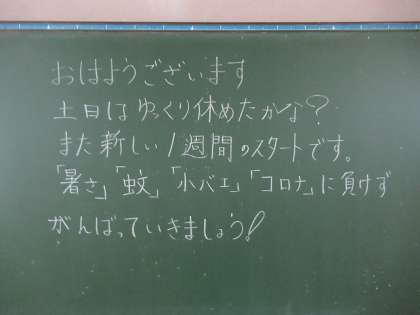 おはようございます
土日はゆっくり休めたかな?
また新しい1週間のスタートです。
「暑さ」「蚊」「小バエ」「コロナ」に負けず
がんばっていきましょう!